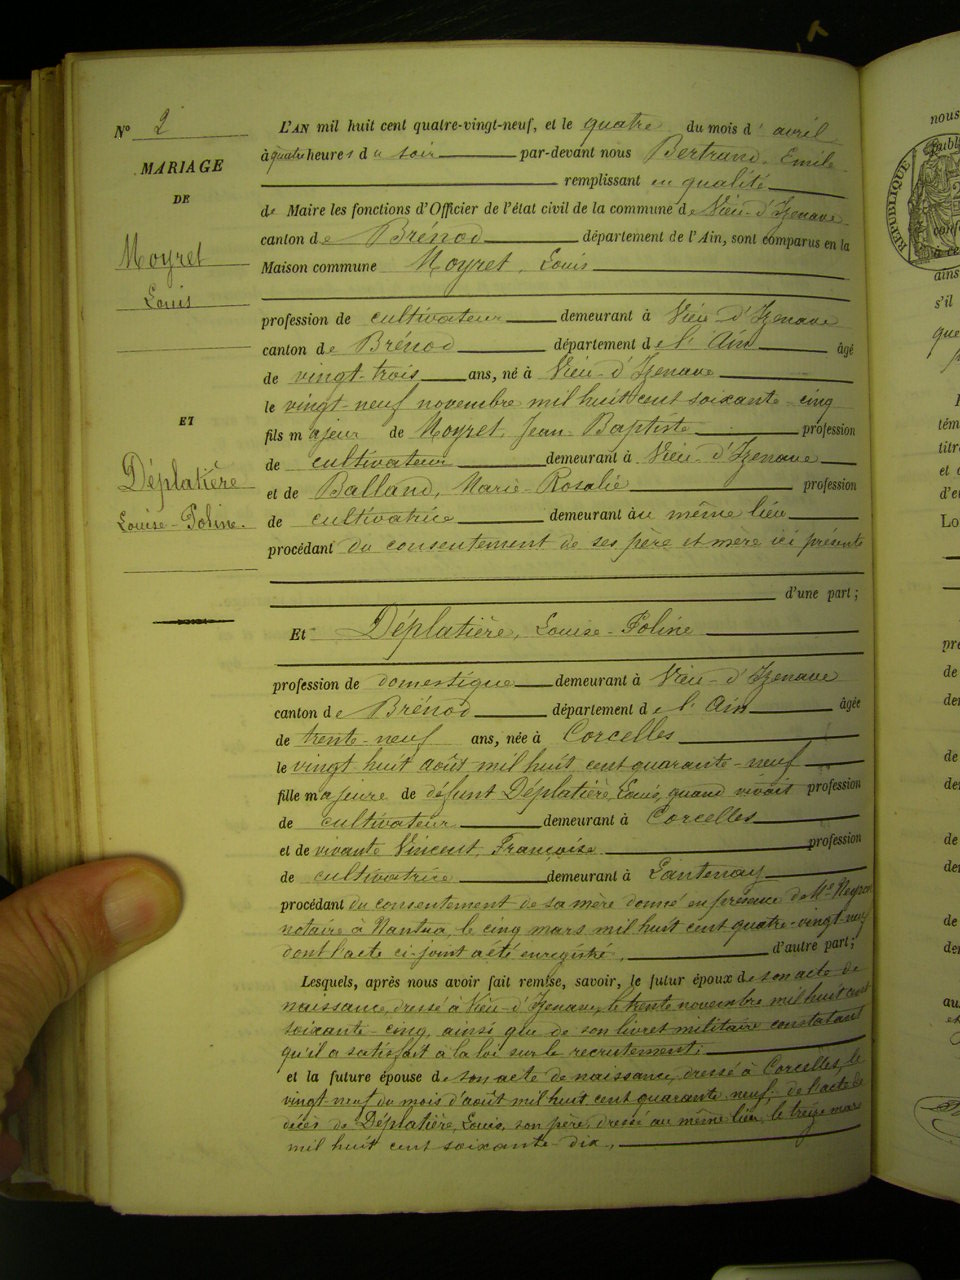 N° 2
MARIAGE
DE
Moyret
Louis
ET
Déplatière
Louise-Poline.
L'AN mil huit cent quatre-vingt-neuf, et le quatre du mois d'avril
à quatre heures du soir par-devant nous Bertrand, Emile
remplissant en qualité
de Maire les fonctions d'Officier de l'état civil de la commune de Vieu-d'Izenave
canton de Brénod département de l'Ain, sont comparus en la
Maison commune Moyret, Louis
profession de cultivateur demeurant à Vieu-d'Izenave
canton de Brénod département de l'Ain âgé
de vingt-trois ans, né à Vieu-d'Izenave
le vingt-neuf novembre mil huit cent soixante-cinq
fils majeur de Moyret, Jean Baptiste profession
de cultivateur demeurant à Vieu-d'Izenave
et de Balland, Marie-Rosalie profession
de cultivatrice demeurant au même lieu
procédant du consentement de ses père et mère ici présents
d'une part;
Et Déplatière, Louise-Poline
profession de domestique demeurant à Vieu-d'Izenave
canton de Brénod département de l'Ain âgée
de trente-neuf ans, née à Corcelles
le vingt huit août mil huit cent quarante-neuf
fille majeure de défunt Déplatière, Louis, quand vivait profession
de cultivateur demeurant à Corcelles
et de vivante Vincent, Françoise profession
de cultivatrice demeurant à Lantenay
procédant du consentement de sa mère donné en présence de Me
notaire à Nantua, le cinq mars mil huit cent quatre-vingt-neuf
dont l'acte ci-joint a été enregistré, d'autre part;
Lesquels, après nous avoir fait remise, savoir, le futur époux de son acte de
naissance, dressé à Vieu-d'Izenave, le trente novembre mil huit cent
soixante-cinq, ainsi que de son livret militaire constatant
qu'il a satisfait à la loi sur le recrutement;
et la future épouse de son acte de naissance, dressé à Corcelles, le
vingt-neuf du mois d'août mil huit cent quarante neuf; de l'acte de
décès de Déplatière, Louis, son père, dressé au même lieu, le treize mars
mil huit cent soixante-dix,
nous
RÉPUBLIQUE
ains
s'il
que
tém
titr
et
d'e
Lo
pré
de
der
de
der
de
der
de
der
au
et